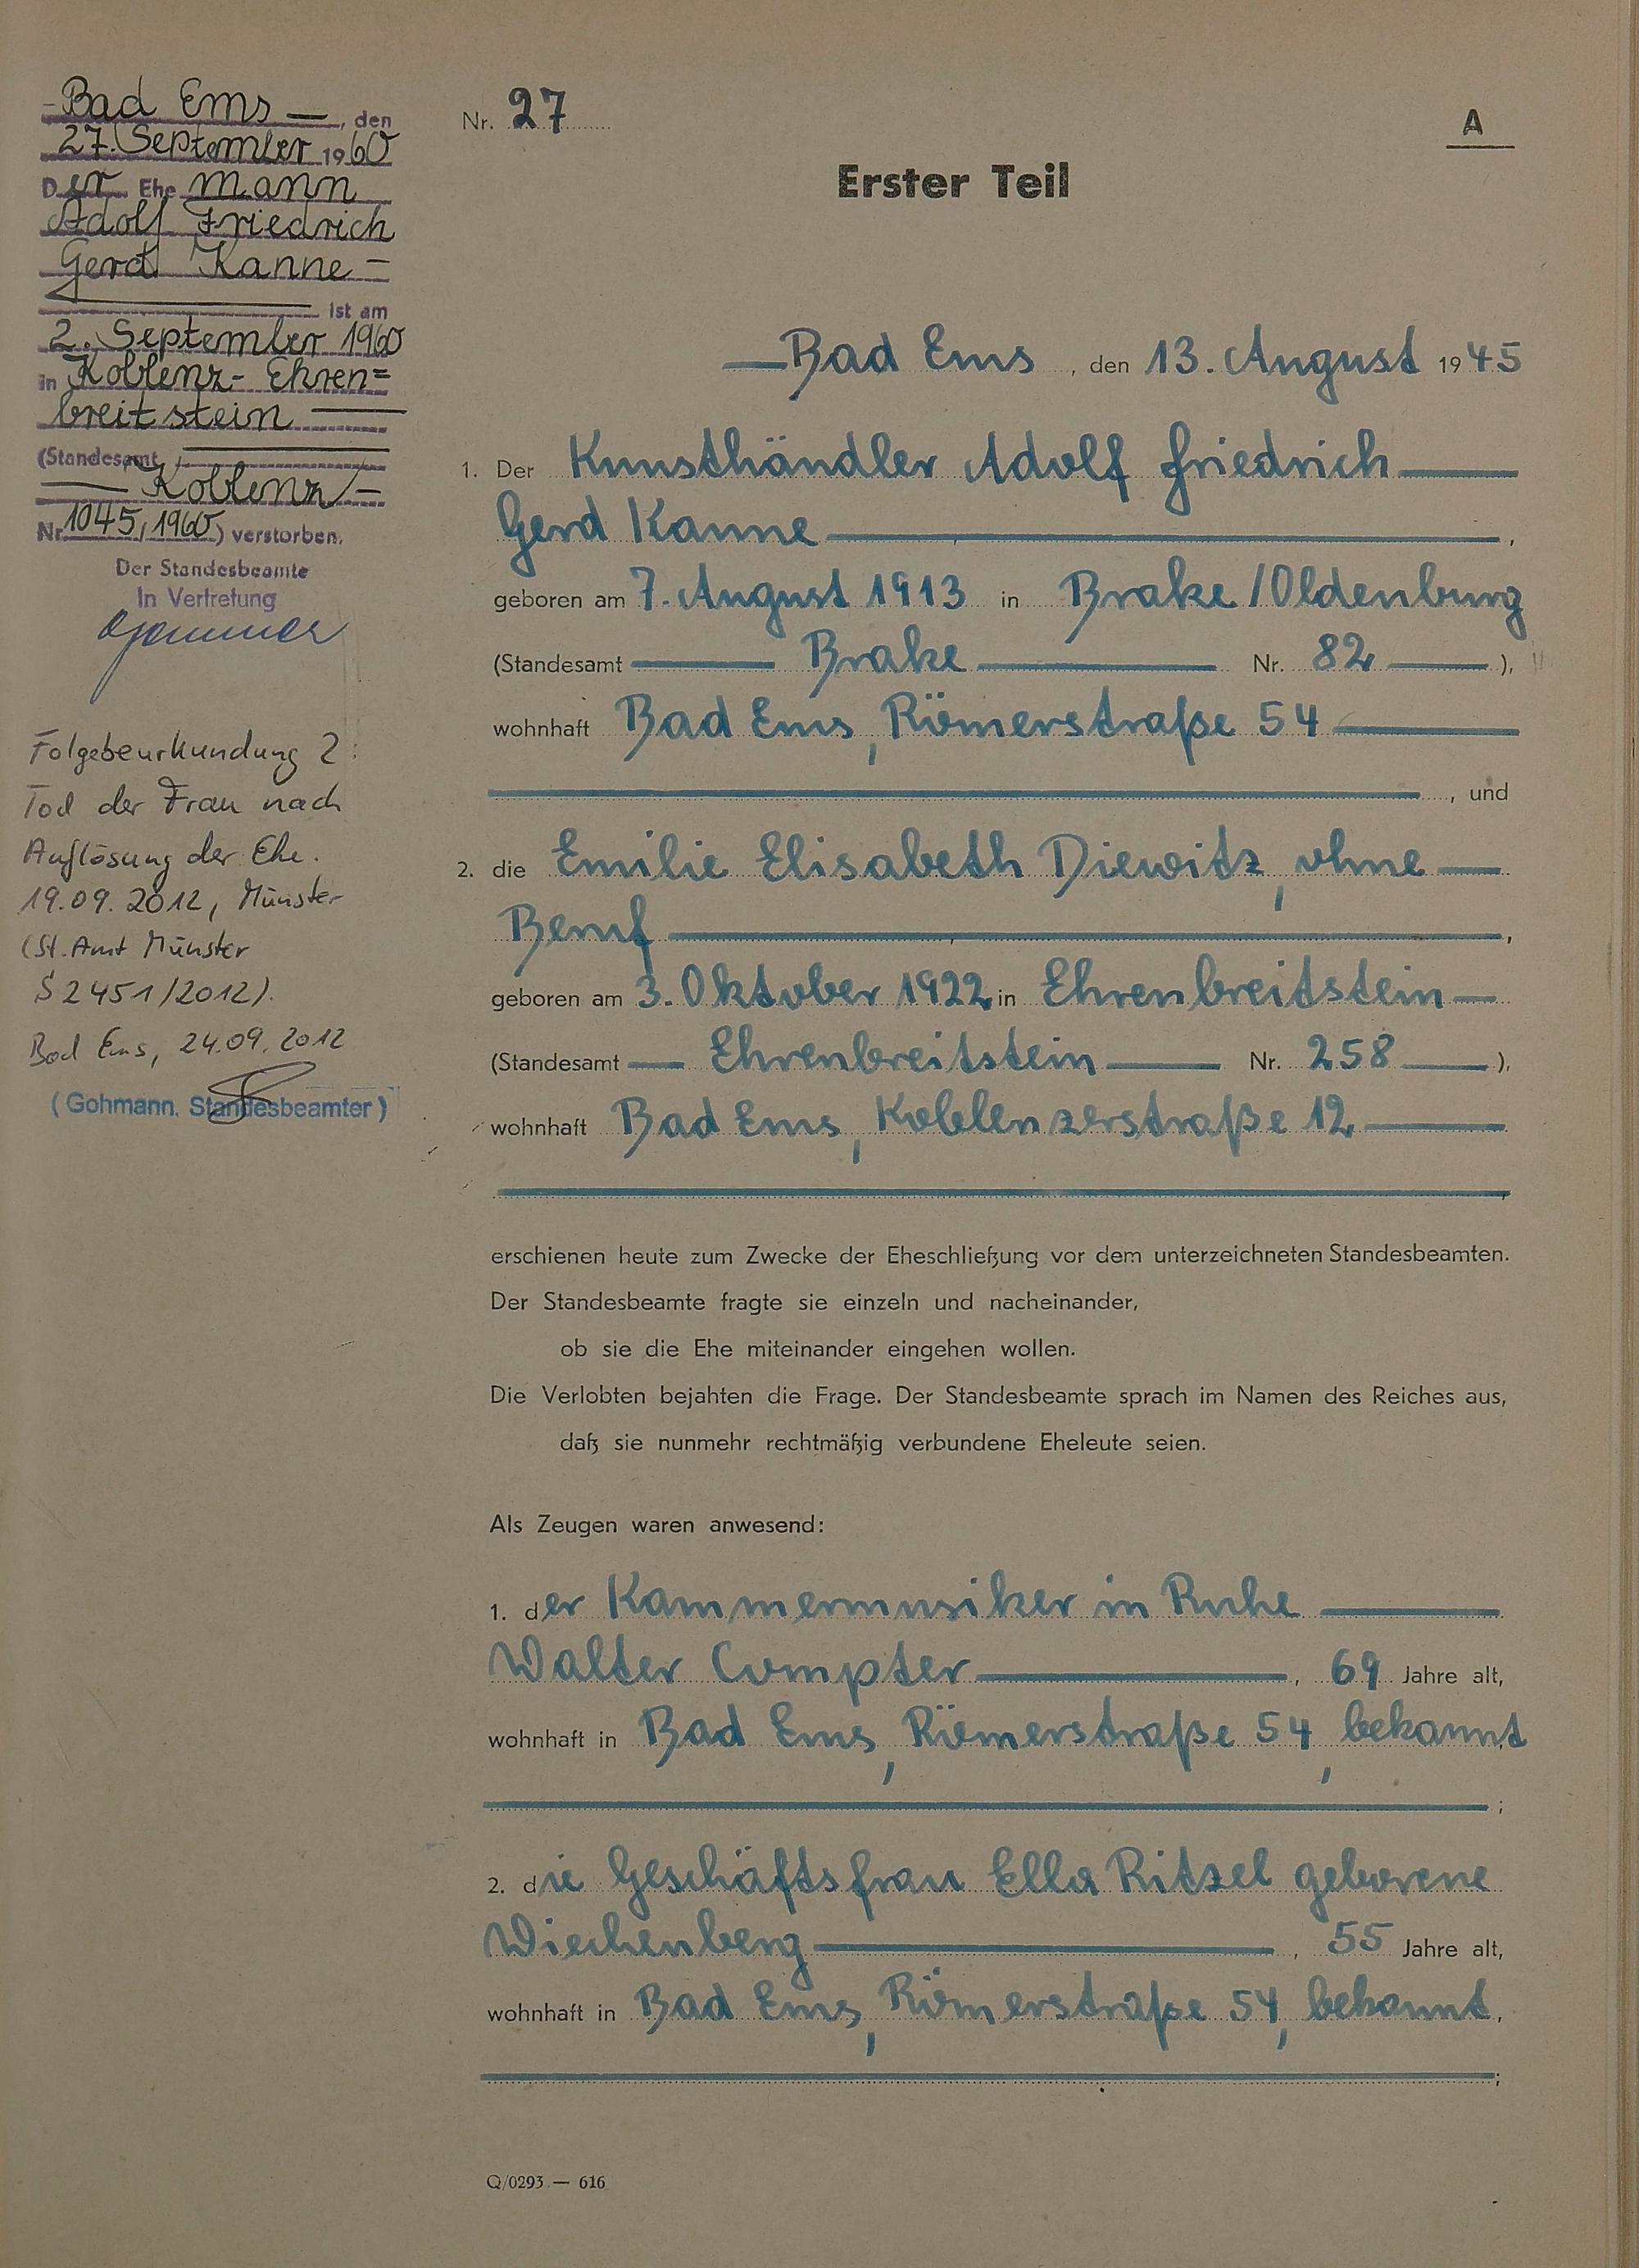 -Bad Ems —, den
27. September 1960
Der Ehemann
Adolf Friedrich
Gerd Kanne -
ist am
2. September 1960
in Koblenz-Ehren=
breitstein
(Standesamt
Koblenz -
Nr. 1045/1960) verstorben.
Der Standesbeamte
In Vertretung
Folgebeurkundung 2:
Tod der Frau nach
Auflösung der Ehe.
19.09.2012, Münster
(St.Amt Münster
S 2451/2012).
Bad Ems, 24.09.2012
(Gohmann, Standesbeamter)
Nr. 27
A
Erster Teil
—Bad Ems, den 13. August 1945
1. Der Kunsthändler Adolf Friedrich
Gerd Kanne,
geboren am 7. August 1913 in Brake/Oldenburg
(Standesamt Brake Nr. 82),
wohnhaft Bad Ems, Römerstraße 54
, und
2. die Emilie Elisabeth Diewitz, ohne
Beruf,
geboren am 3. Oktober 1922 in Ehrenbreitstein
(Standesamt Ehrenbreitstein Nr. 258),
wohnhaft Bad Ems, Koblenzerstraße 12
,
erschienen heute zum Zwecke der Eheschließung vor dem unterzeichneten Standesbeamten.
Der Standesbeamte fragte sie einzeln und nacheinander,
ob sie die Ehe miteinander eingehen wollen.
Die Verlobten bejahten die Frage. Der Standesbeamte sprach im Namen des Reiches aus,
daß sie nunmehr rechtmäßig verbundene Eheleute seien.
Als Zeugen waren anwesend:
1. der Kammermusiker in Ruhe
Walter Compter, 69 Jahre alt,
wohnhaft in Bad Ems, Römerstraße 54, bekannt
;
2. die Geschäftsfrau Ella Ritzel geborene
Wiechenberg, 55 Jahre alt,
wohnhaft in Bad Ems, Römerstraße 54, bekannt.
;
Q/0293 — 616